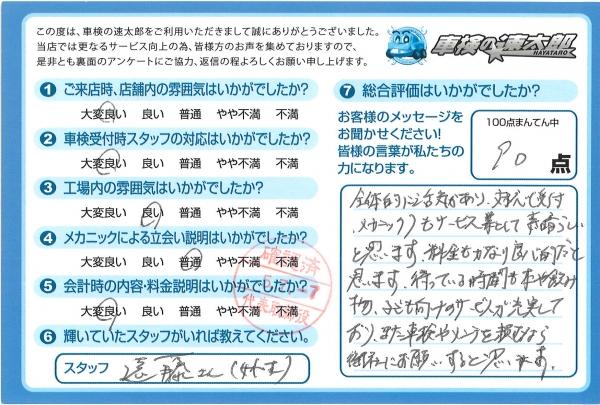 この度は、車検の速太郎をご利用いただきまして誠にありがとうございました。
当店では更なるサービス向上の為、皆様方のお声を集めておりますので、
是非とも裏面のアンケートにご協力、返信の程よろしくお願い申し上げます。
車検の速太郎
HAYATARO
1 ご来店時、店舗内の雰囲気はいかがでしたか?
大変良い 良い 普通 やや不満 不満
2 車検受付時スタッフの対応はいかがでしたか?
大変良い 良い 普通 やや不満 不満
3 工場内の雰囲気はいかがでしたか?
大変良い 良い 普通 やや不満 不満
4 メカニックによる立会い説明はいかがでしたか?
大変良い 良い 普通 やや不満 不満
5 会計時の内容・料金説明はいかがでしたか?
大変良い 良い 普通 やや不満 不満
6 輝いていたスタッフがいれば教えてください。
スタッフ 遠藤さん
確認済
代表取締役
7 総合評価はいかがでしたか?
お客様のメッセージを
お聞かせください!
皆様の言葉が私たちの
力になります。
100点まんてん中
90 点
全体的に活気があり、対応(受付、
メカニック)もサービス業として素晴らしい
と思います。料金もかなり良い的だと
思います。待っている時間も本や飲み
物、子ども向けのサービスが充実して
おり、また車検やメンテを頼むなら
御社にお願いすると思います。